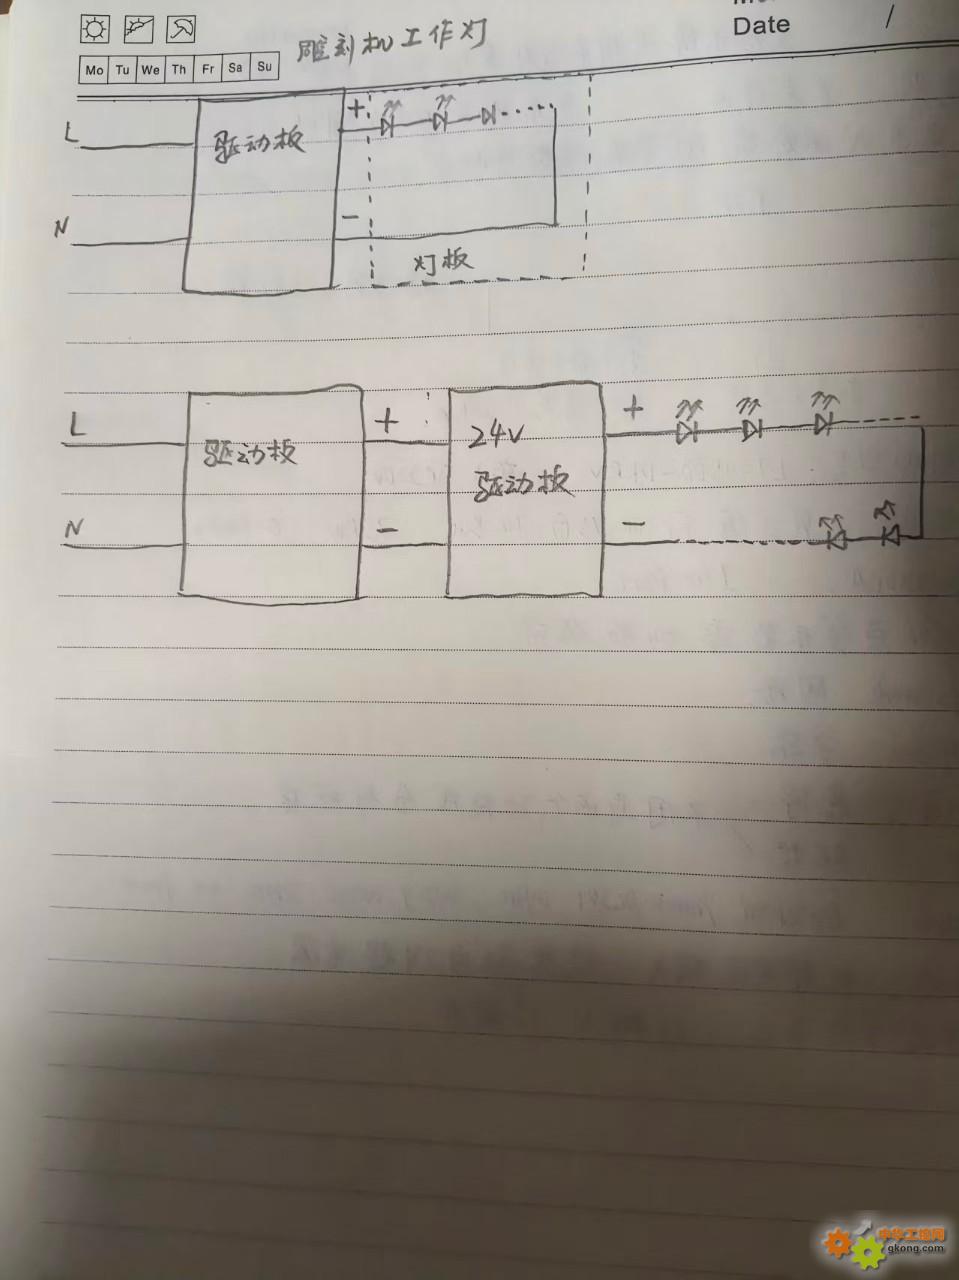 Date /
雕刻机工作灯
Mo Tu We Th Fr Sa Su
L
驱动板
+
N
−
灯板
L
驱动板
+
24V
驱动板
+
N
−
−
中华工控网
gkong.com